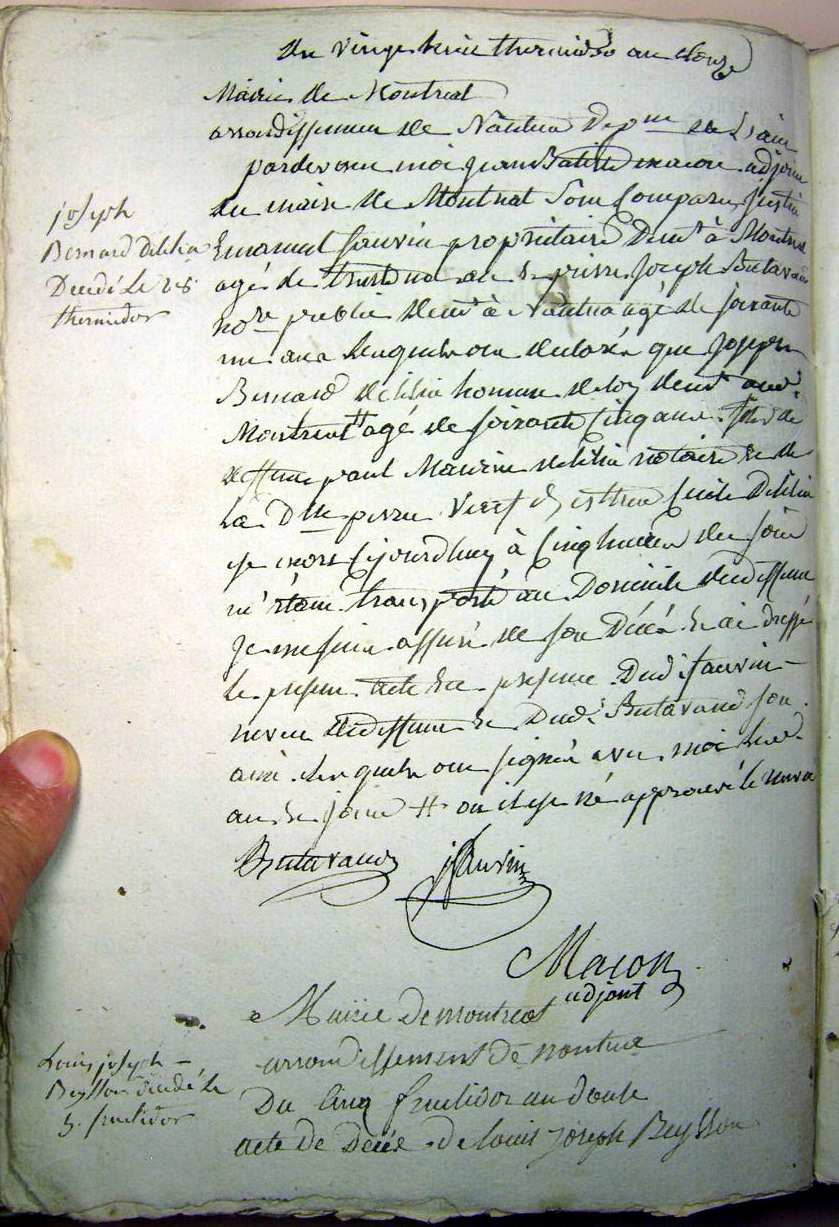 Du vingt huit thermidor an douze
Mairie de Montreal
arrondissement de Nantua Depm de L'ain
pardevant moi jean Batiste macon adjoint
du maire de Montreal Sont Comparu justin
Emanuel Jauvin propriétaire Demt à Montreal
agé de trente ans & pierre joseph Butavand
nore public demt à Nantua agé de soixante
un ans lesquels ont declaré que joseph
Bernard delilia homme de loy demt aud.
Montreal # agé de soixante Cinq ans fils de
deffunt paul Maurice delilia notaire & de
La Dlle pierre Delilia
est mort cejourdhuy à Cinq heures du soir
m'étant transporté au Domicile dudit deffunt
je me suis assuré de son Décés & ai dressé
le présent acte en présence Dudit jauvin
neveu dudit deffunt & Dudt Butavand son
ami lesquels ont signé avec moi Lesd.
an & jour # où il est né approuvé le renvoi
Butavand jJauvin
Macon
adjoint
joseph
Bernard Delilia
Decedé le 28
thermidor
Mairie de montreal
arrondissement de nantua
Du cinq fructidor an douse
acte de Décés de louis joseph Beysson
Louis joseph
Beysson décédé le
5. fructidor